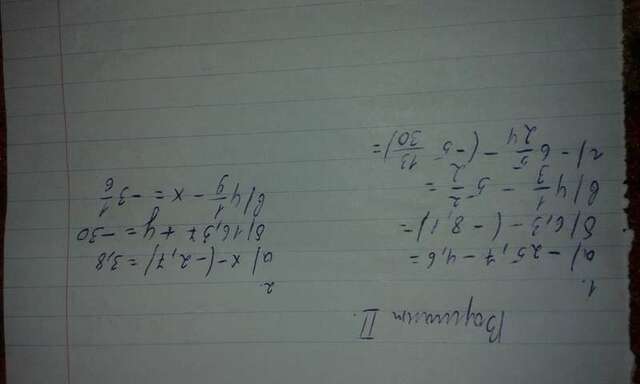 Вариант II.
1.
а) – 25,7 – 4,6 =
б) 6,3 – (– 8,1) =
в) 4 1/3 – 5 =
г) – 6 5/24 – (–5 13/30) =
2.
а) x – (–2,7) = 3,8
б) 16,37 + y = –30
в) 4 1/9 – x = –3 1/6